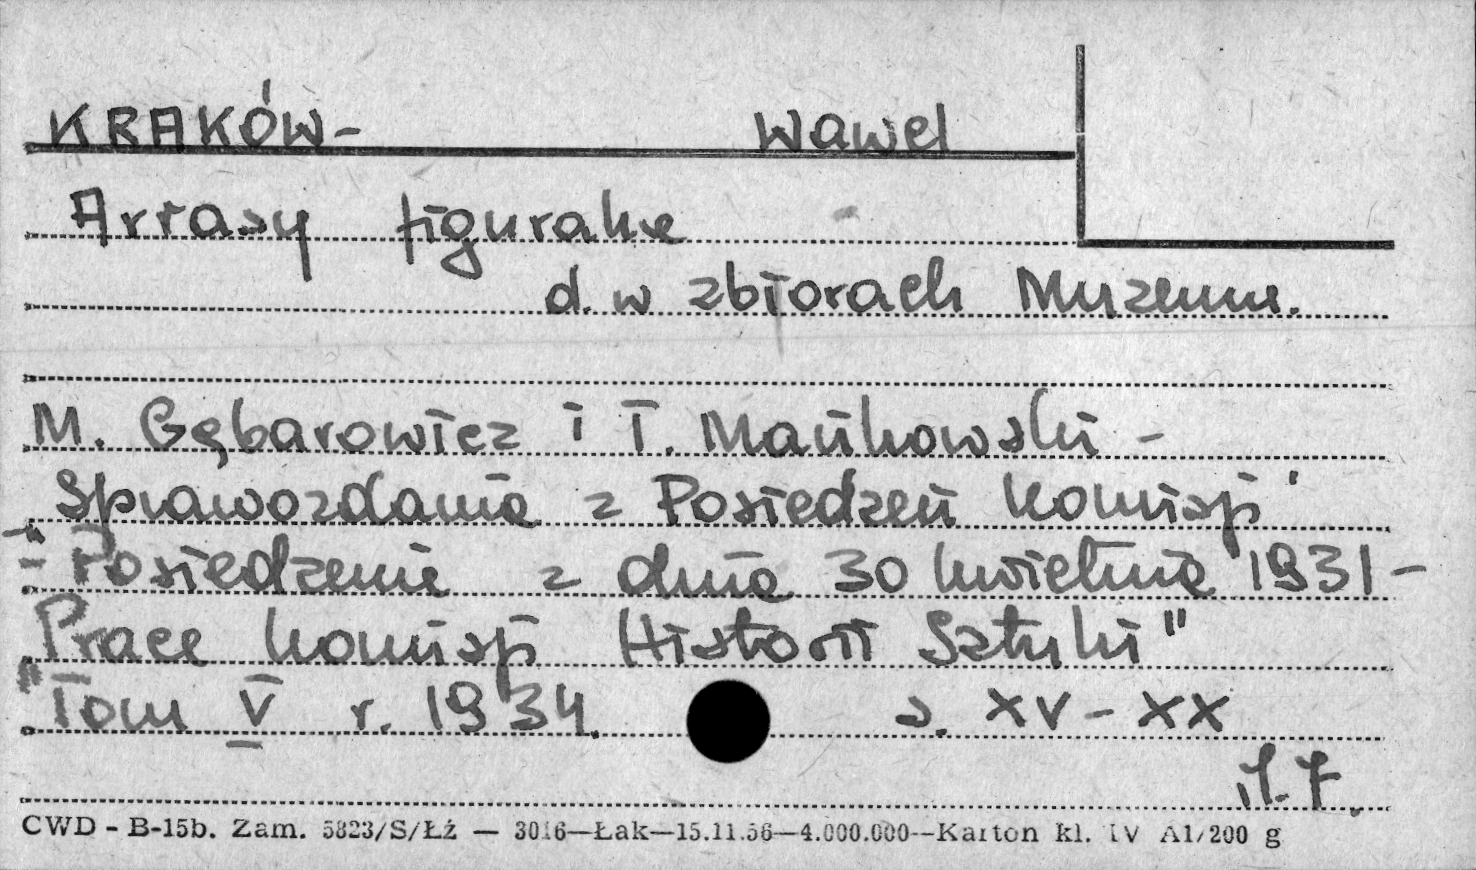 KRAKÓW - Wawel
Arrasy figuralne
d. w zbiorach Muzeum.
M. Gębarowicz i T. Mańkowski -
Sprawozdania z Posiedzeń Komisji
- Posiedzenie z dnia 30 kwietnia 1931 -
"Prace Komisji Historii Sztuki"
Tom V r. 1934. s. XV - XX
CWD - B-15b. Zam. 5823/S/Łż — 3016—Łak—15.11.56—4.000.000—Karton kl. IV A1/200 g